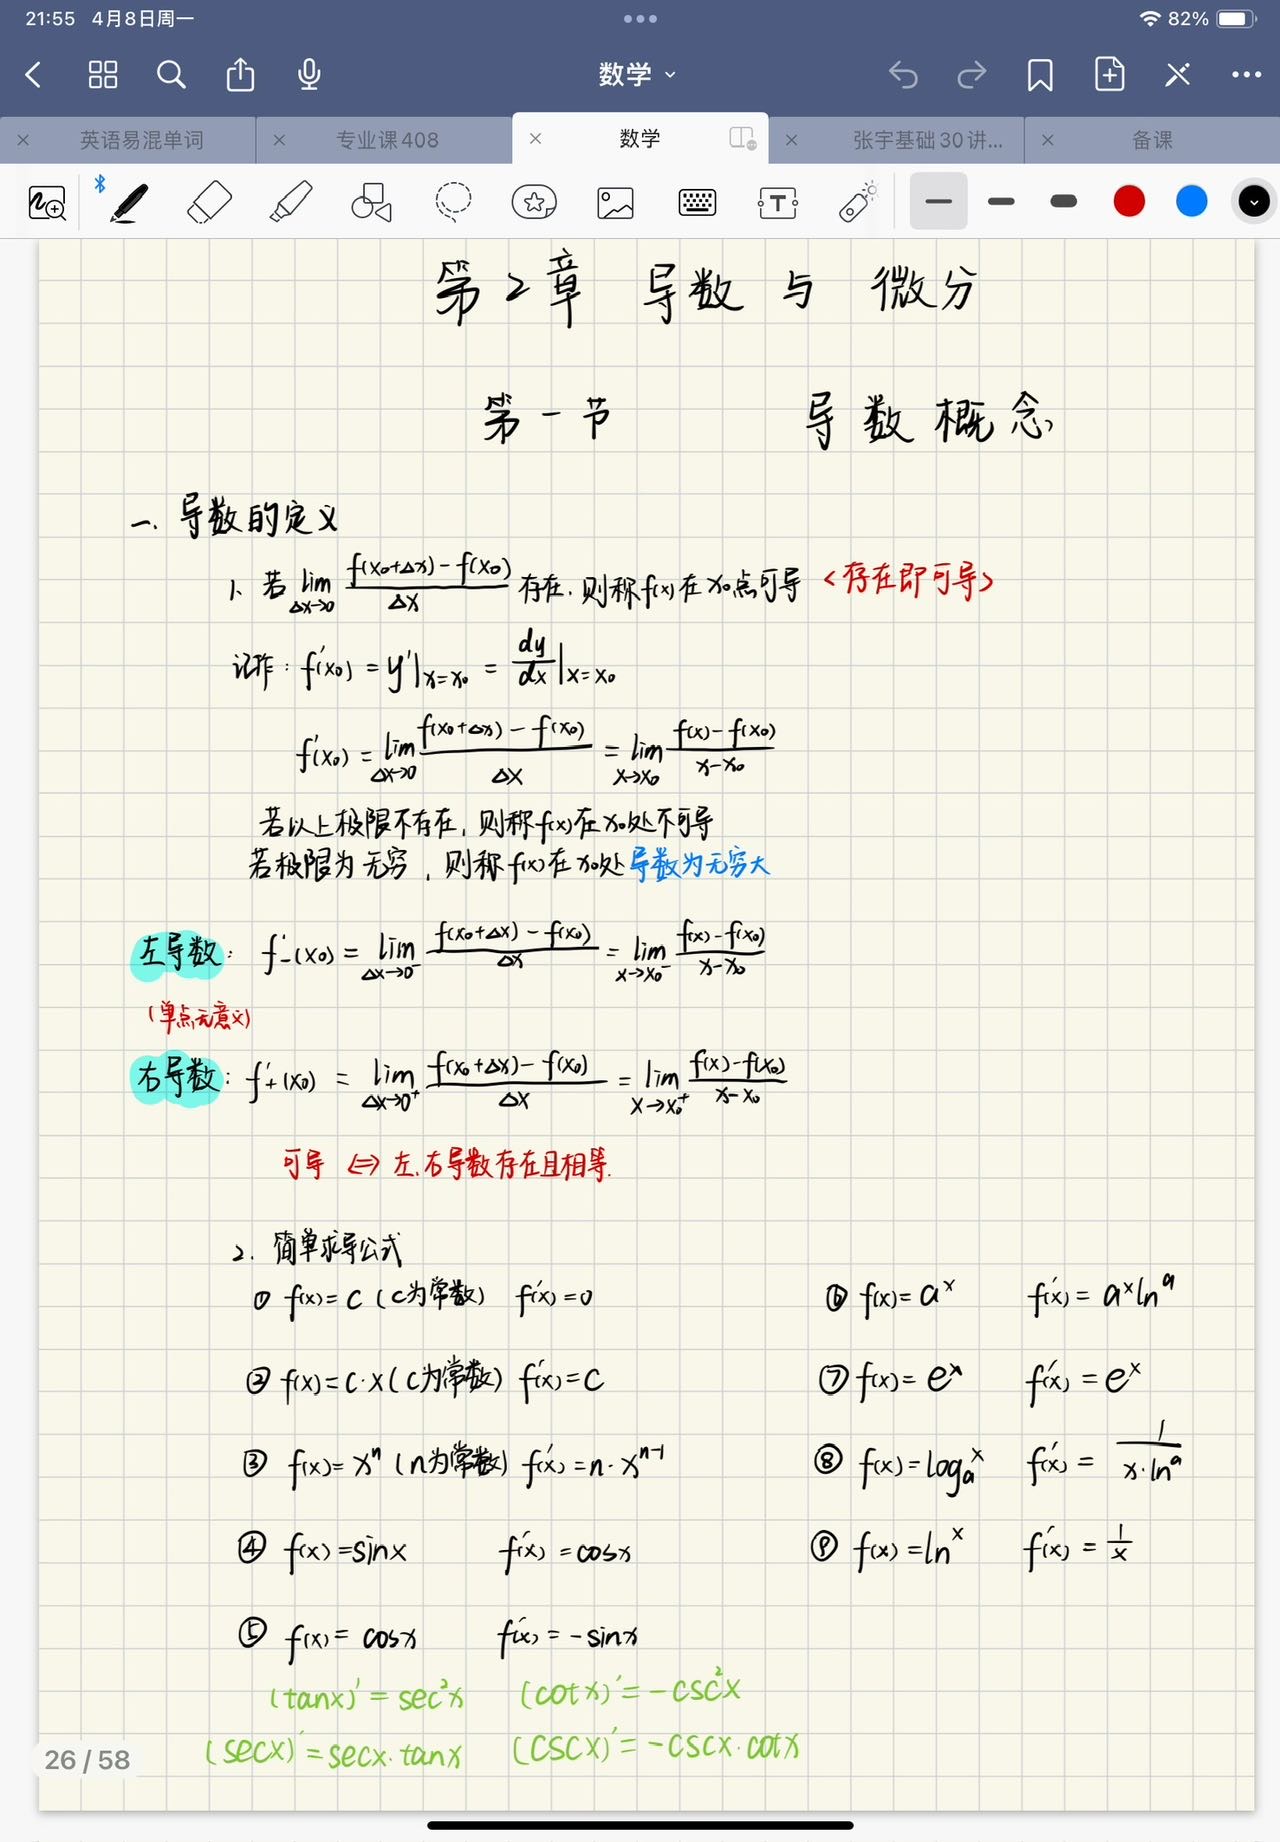 21:55 4月8日周一
82%
数学
英语易混单词 专业课408 数学 张宇基础30讲... 备课
第2章 导数与微分
第一节 导数概念
一、导数的定义
1、若 lim_{Δx→0} (f(x₀+Δx)-f(x₀))/Δx 存在,则称f(x)在x₀点可导 <存在即可导>
记作: f'(x₀) = y'|_{x=x₀} = dy/dx|_{x=x₀}
f'(x₀) = lim_{Δx→0} (f(x₀+Δx)-f(x₀))/Δx = lim_{x→x₀} (f(x)-f(x₀))/(x-x₀)
若以上极限不存在,则称f(x)在x₀处不可导
若极限为无穷,则称f(x)在x₀处导数为无穷大
左导数: f'₋(x₀) = lim_{Δx→0⁻} (f(x₀+Δx)-f(x₀))/Δx = lim_{x→x₀⁻} (f(x)-f(x₀))/(x-x₀)
(单点无意义)
右导数: f'₊(x₀) = lim_{Δx→0⁺} (f(x₀+Δx)-f(x₀))/Δx = lim_{x→x₀⁺} (f(x)-f(x₀))/(x-x₀)
可导 ⇔ 左、右导数存在且相等.
2. 简单求导公式
① f(x)=C (C为常数) f'(x)=0
② f(x)=C·x (C为常数) f'(x)=C
③ f(x)=xⁿ (n为常数) f'(x)=n·xⁿ⁻¹
④ f(x)=sinx f'(x)=cosx
⑤ f(x)=cosx f'(x)=-sinx
⑥ f(x)=aˣ f'(x)=aˣlnᵃ
⑦ f(x)=eˣ f'(x)=eˣ
⑧ f(x)=logₐˣ f'(x)=1/(x·lnᵃ)
⑨ f(x)=lnˣ f'(x)=1/x
(tanx)'=sec²x (cotx)'=-csc²x
(secx)'=secx·tanx (cscx)'=-cscx·cotx
26/58